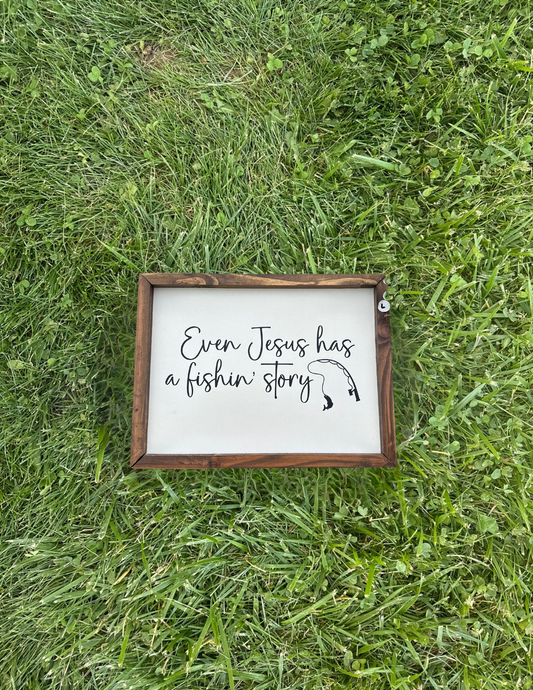 Even Jesus has
a fishin' story
L